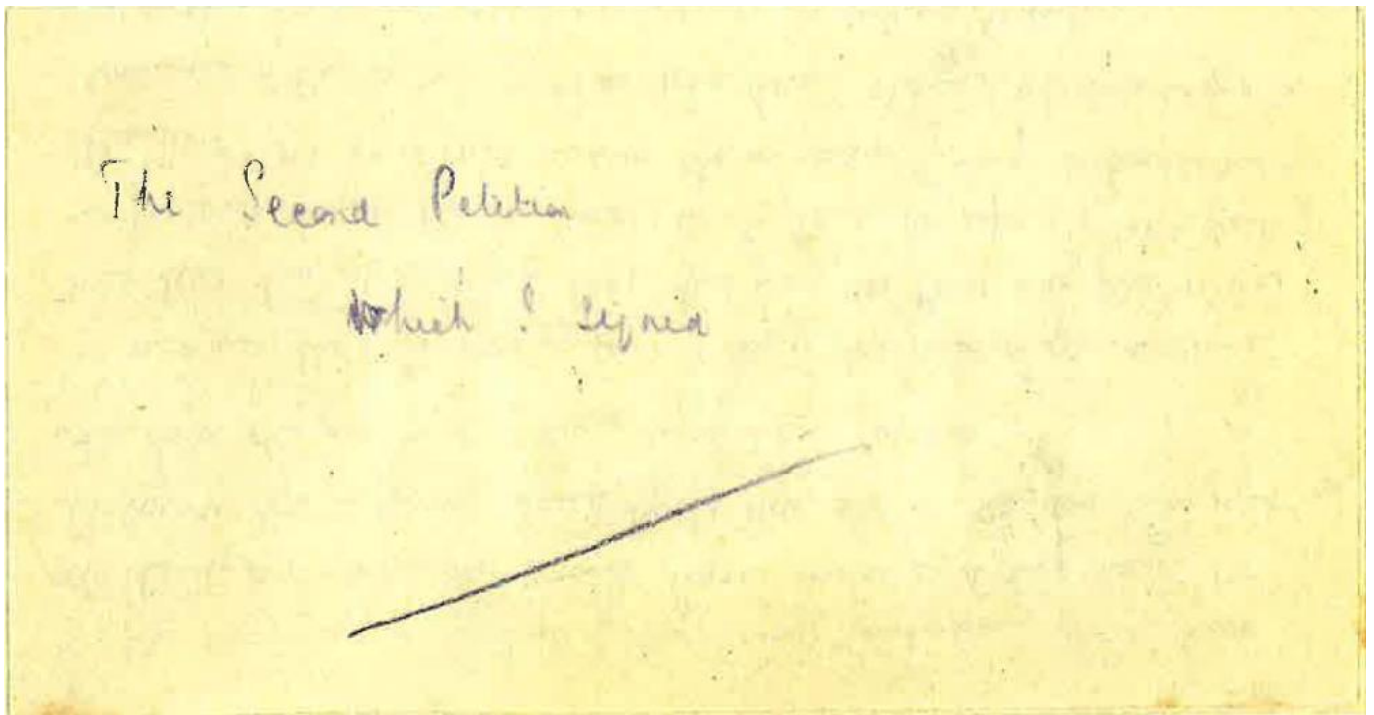 The Second Petition
Which I signed